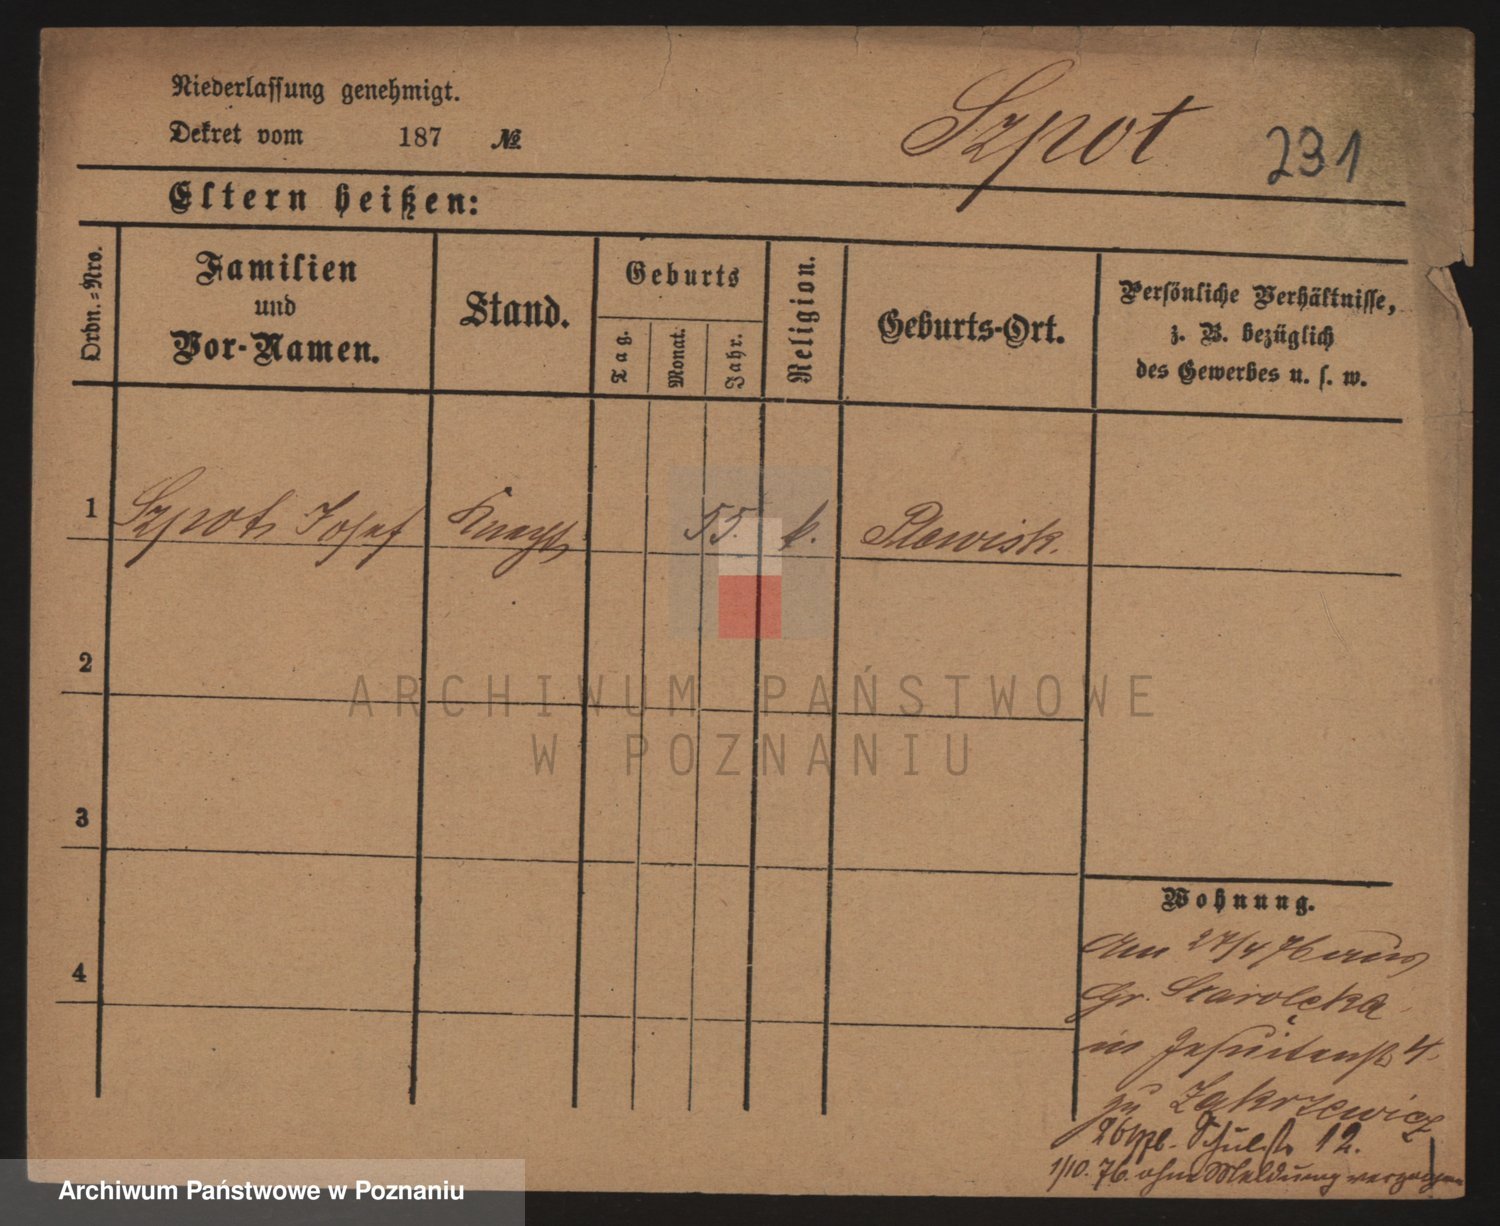 Niederlassung genehmigt.
Dekret vom 187 №
Szpot
231
Eltern heißen:
Ordn.-Nro.
Familien
und
Vor-Namen.
Stand.
Geburts
Tag.
Monat.
Jahr.
Religion.
Geburts-Ort.
Persönliche Verhältnisse,
z. B. bezüglich
des Gewerbes u. s. w.
1 Szpot Josef Knecht 55. k. Plewisk.
2
3
4
ARCHIWUM PAŃSTWOWE
W POZNANIU
Wohnung.
Am 27/4 76 aus
Gr. Starolęka
in Jesuitenstr 4.
zu Zakrzewicz
Schulstr 12.
1/10. 76. ohne Meldung verzogen
Archiwum Państwowe w Poznaniu